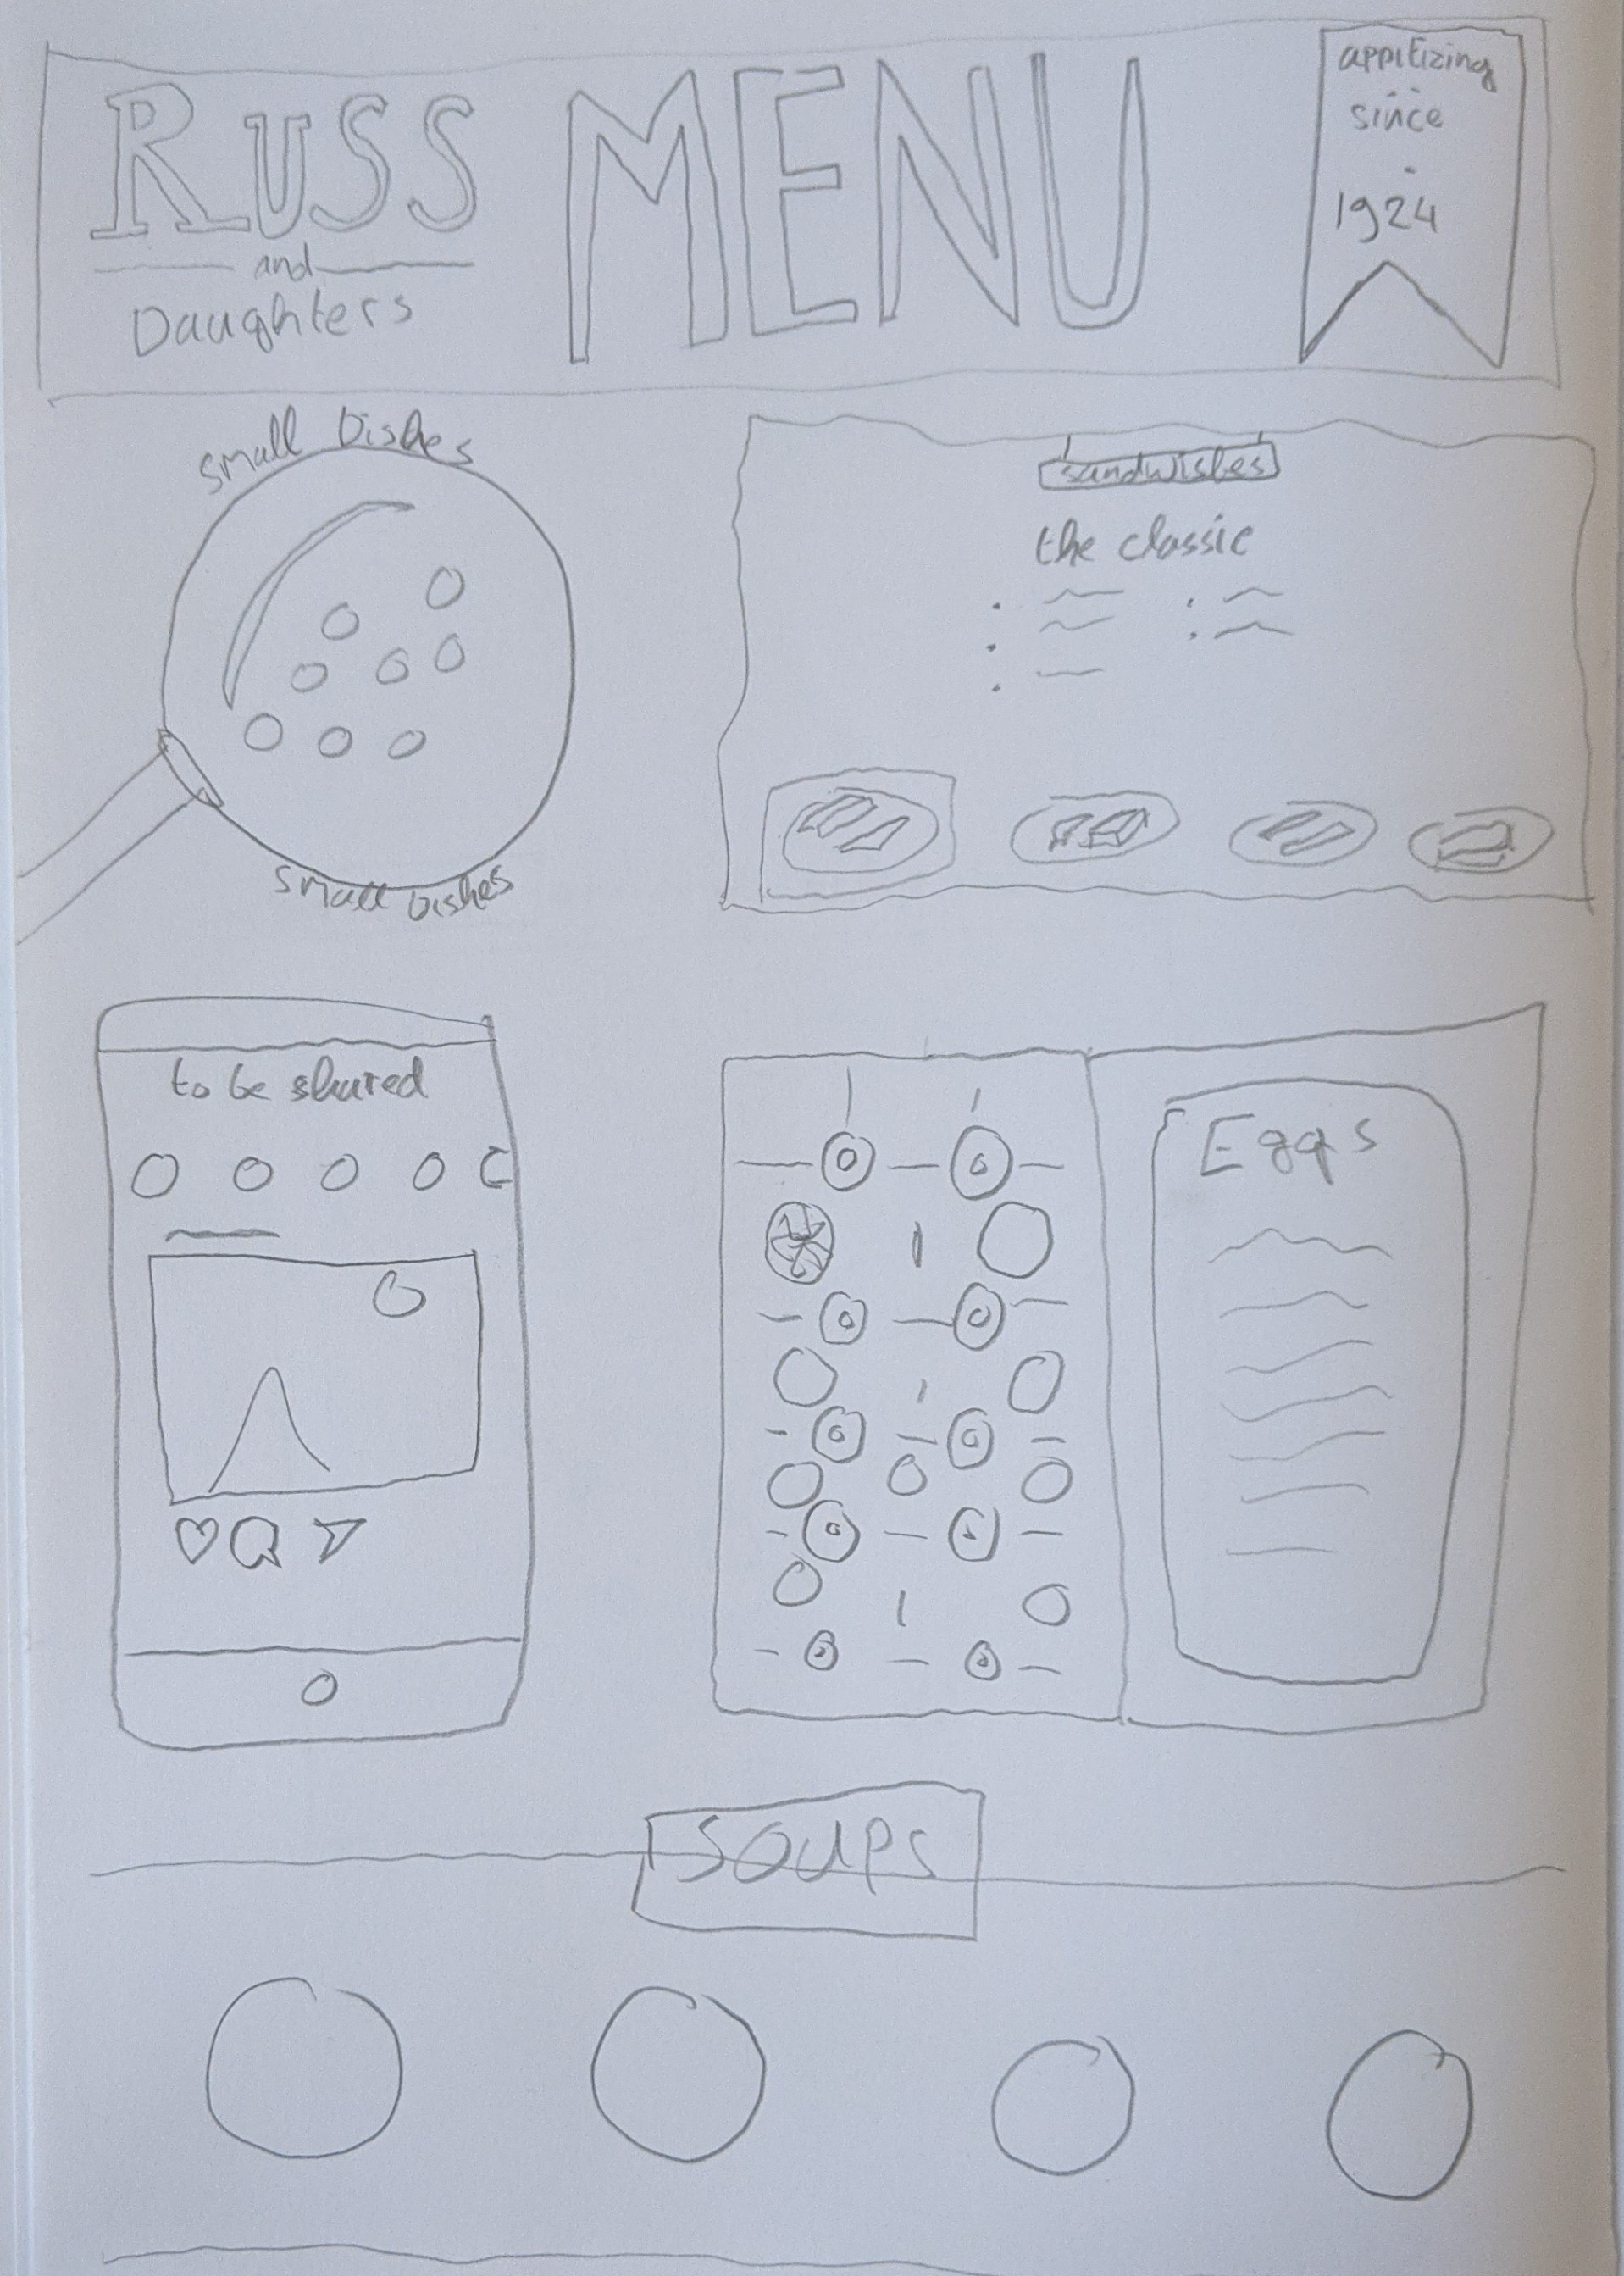 RUSS
and
Daughters
MENU
appitizing
since
1924
small Dishes
small Dishes
sandwishes
the classic
to be shared
Eggs
SOUPS